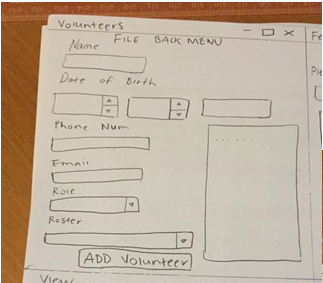 Volunteers
FILE BACK MENU
Name
Date of Birth
Phone Num
Email
Role
Roster
ADD Volunteer
View